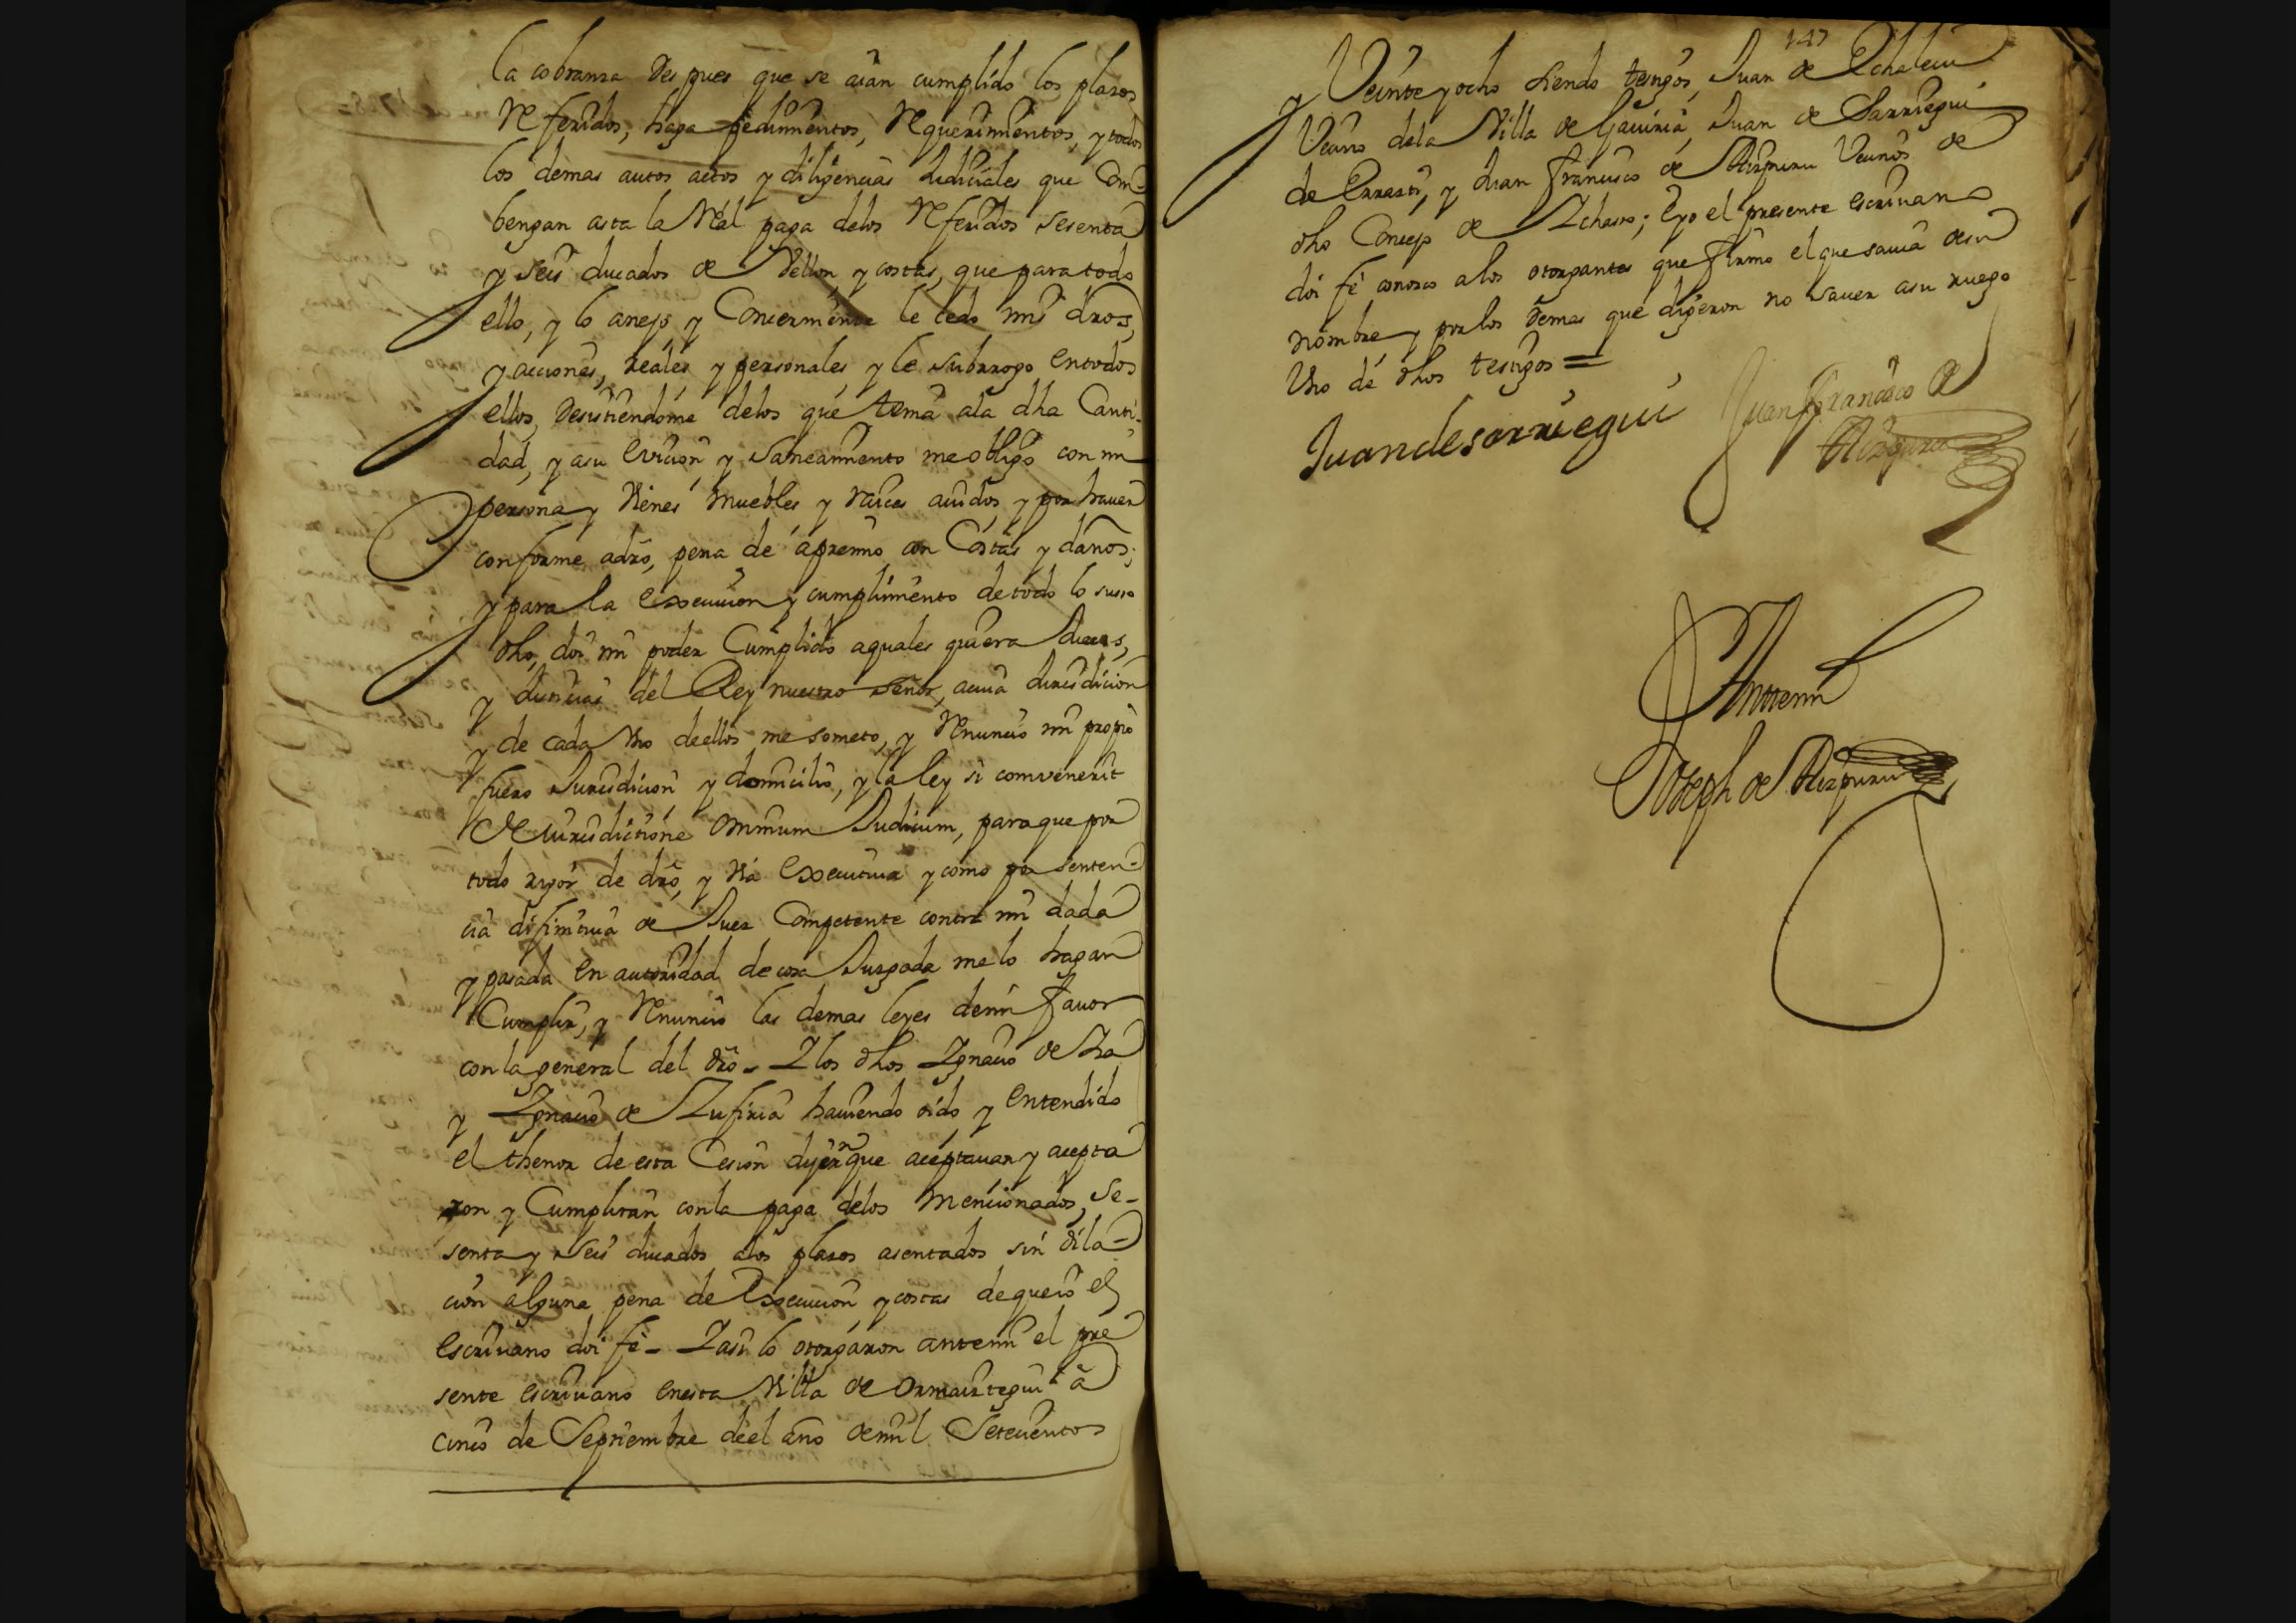 la cobranza des pues que se aian cumplido los plazos
Referidos, haga pedimientos, Requerimientos, y todos
los demas autos actos y diligencias Judiciales que Com-
bengan asta la Real paga delos Referidos sesenta
y seis ducados de Vellon, y costas, que para todo
ello, y lo anejo, y Concerniente le cedo mis dros,
y acciones, reales y personales y le subrrogo en todos
ellos, desistiendome delos que tenia ala dha Canti-
dad, y asu evicion y saneamiento me obligo con mi
persona y vienes muebles y raices auidos y por hauer
conforme adro, pena de apremio con Costas y daños;
y para la execucion y cumplimiento de todo lo suso
dho, doi mi poder Cumplido aquales quiera Jueces,
y Justicias del Rey nuestro señor, acuia Jurisdicion
y de cada vno deellos me someto, y Renuncio mi propio
fuero Jurisdicion y domicilio, y la ley si comvenerit
de iurisdictione omnium Judicum, paraque por
todo rigor de dro, y via executiua y como por senten-
cia difinitiua de Juez Competente contra mi dada
y pasada en autoridad de cosa Juzgada me lo hagan
Cumplir, y Renuncio las demas leyes demi fauor
con la general del dro - I los dhos Ignacio de
y Ignacio de Zufiria hauiendo oido y entendido
el thenor de esta Cesion dijeron que aceptauan y acepta
ron y Cumpliran con la paga delos mencionados, se-
senta y seis ducados alos plazos asentados sin dila-
cion alguna pena de Execucion y costas de que io el
escriuano doi fe - I asi lo otorgaron antemi el pre
sente escriuano enesta Villa de Ormaiztegui a
cinco de Septiembre deel año demil Setecientos
147
y Veinte y ocho siendo testigos, Juan de Echalecu
Vecino dela Villa de Gauiria, Juan de Sarriegui
de Errazti, y Juan francisco de Aizpuru Vecinos de
dho Concejo de Ichaso; E yo el presente escriuano
doi fe conozco alos otorgantes que firmo el que sauia desu
nombre y por los demas que dijeron no sauer asu ruego
Vno de dhos testigos =
Juan de sarriegui Juan francisco de
Aizpuru
Antemi
Joseph de Aizpuru